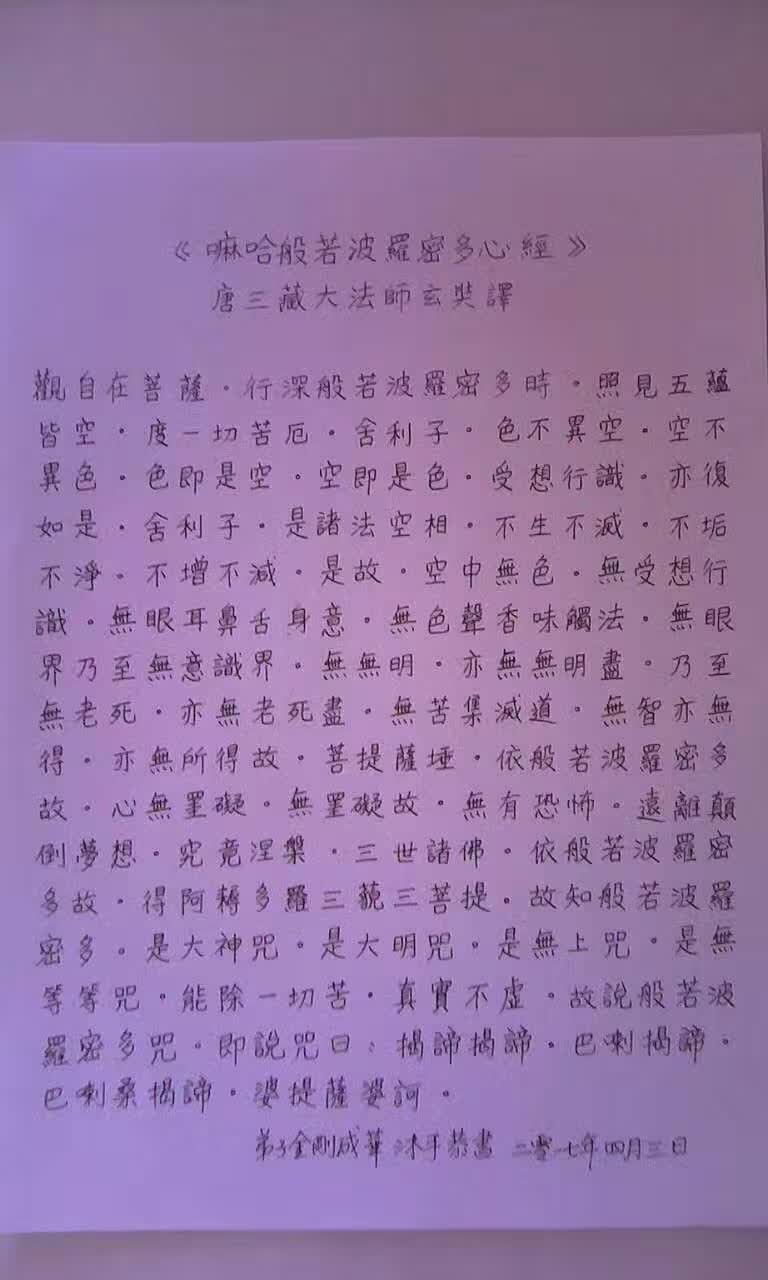 《嘛哈般若波羅密多心經》
唐三藏大法師玄奘譯
觀自在菩薩。行深般若波羅密多時。照見五蘊
皆空。度一切苦厄。舍利子。色不異空。空不
異色。色即是空。空即是色。受想行識。亦復
如是。舍利子。是諸法空相。不生不滅。不垢
不淨。不增不減。是故。空中無色。無受想行
識。無眼耳鼻舌身意。無色聲香味觸法。無眼
界乃至無意識界。無無明。亦無無明盡。乃至
無老死。亦無老死盡。無苦集滅道。無智亦無
得。亦無所得故。菩提薩埵。依般若波羅密多
故。心無罣礙。無罣礙故。無有恐怖。遠離顛
倒夢想。究竟涅槃。三世諸佛。依般若波羅密
多故。得阿耨多羅三藐三菩提。故知般若波羅
密多。是大神咒。是大明咒。是無上咒。是無
等等咒。能除一切苦。真實不虛。故說般若波
羅密多咒。即說咒曰：揭諦揭諦。巴喇揭諦。
巴喇桑揭諦。婆提薩婆訶。
弟子金剛成華沐手恭書 二零一七年四月三日